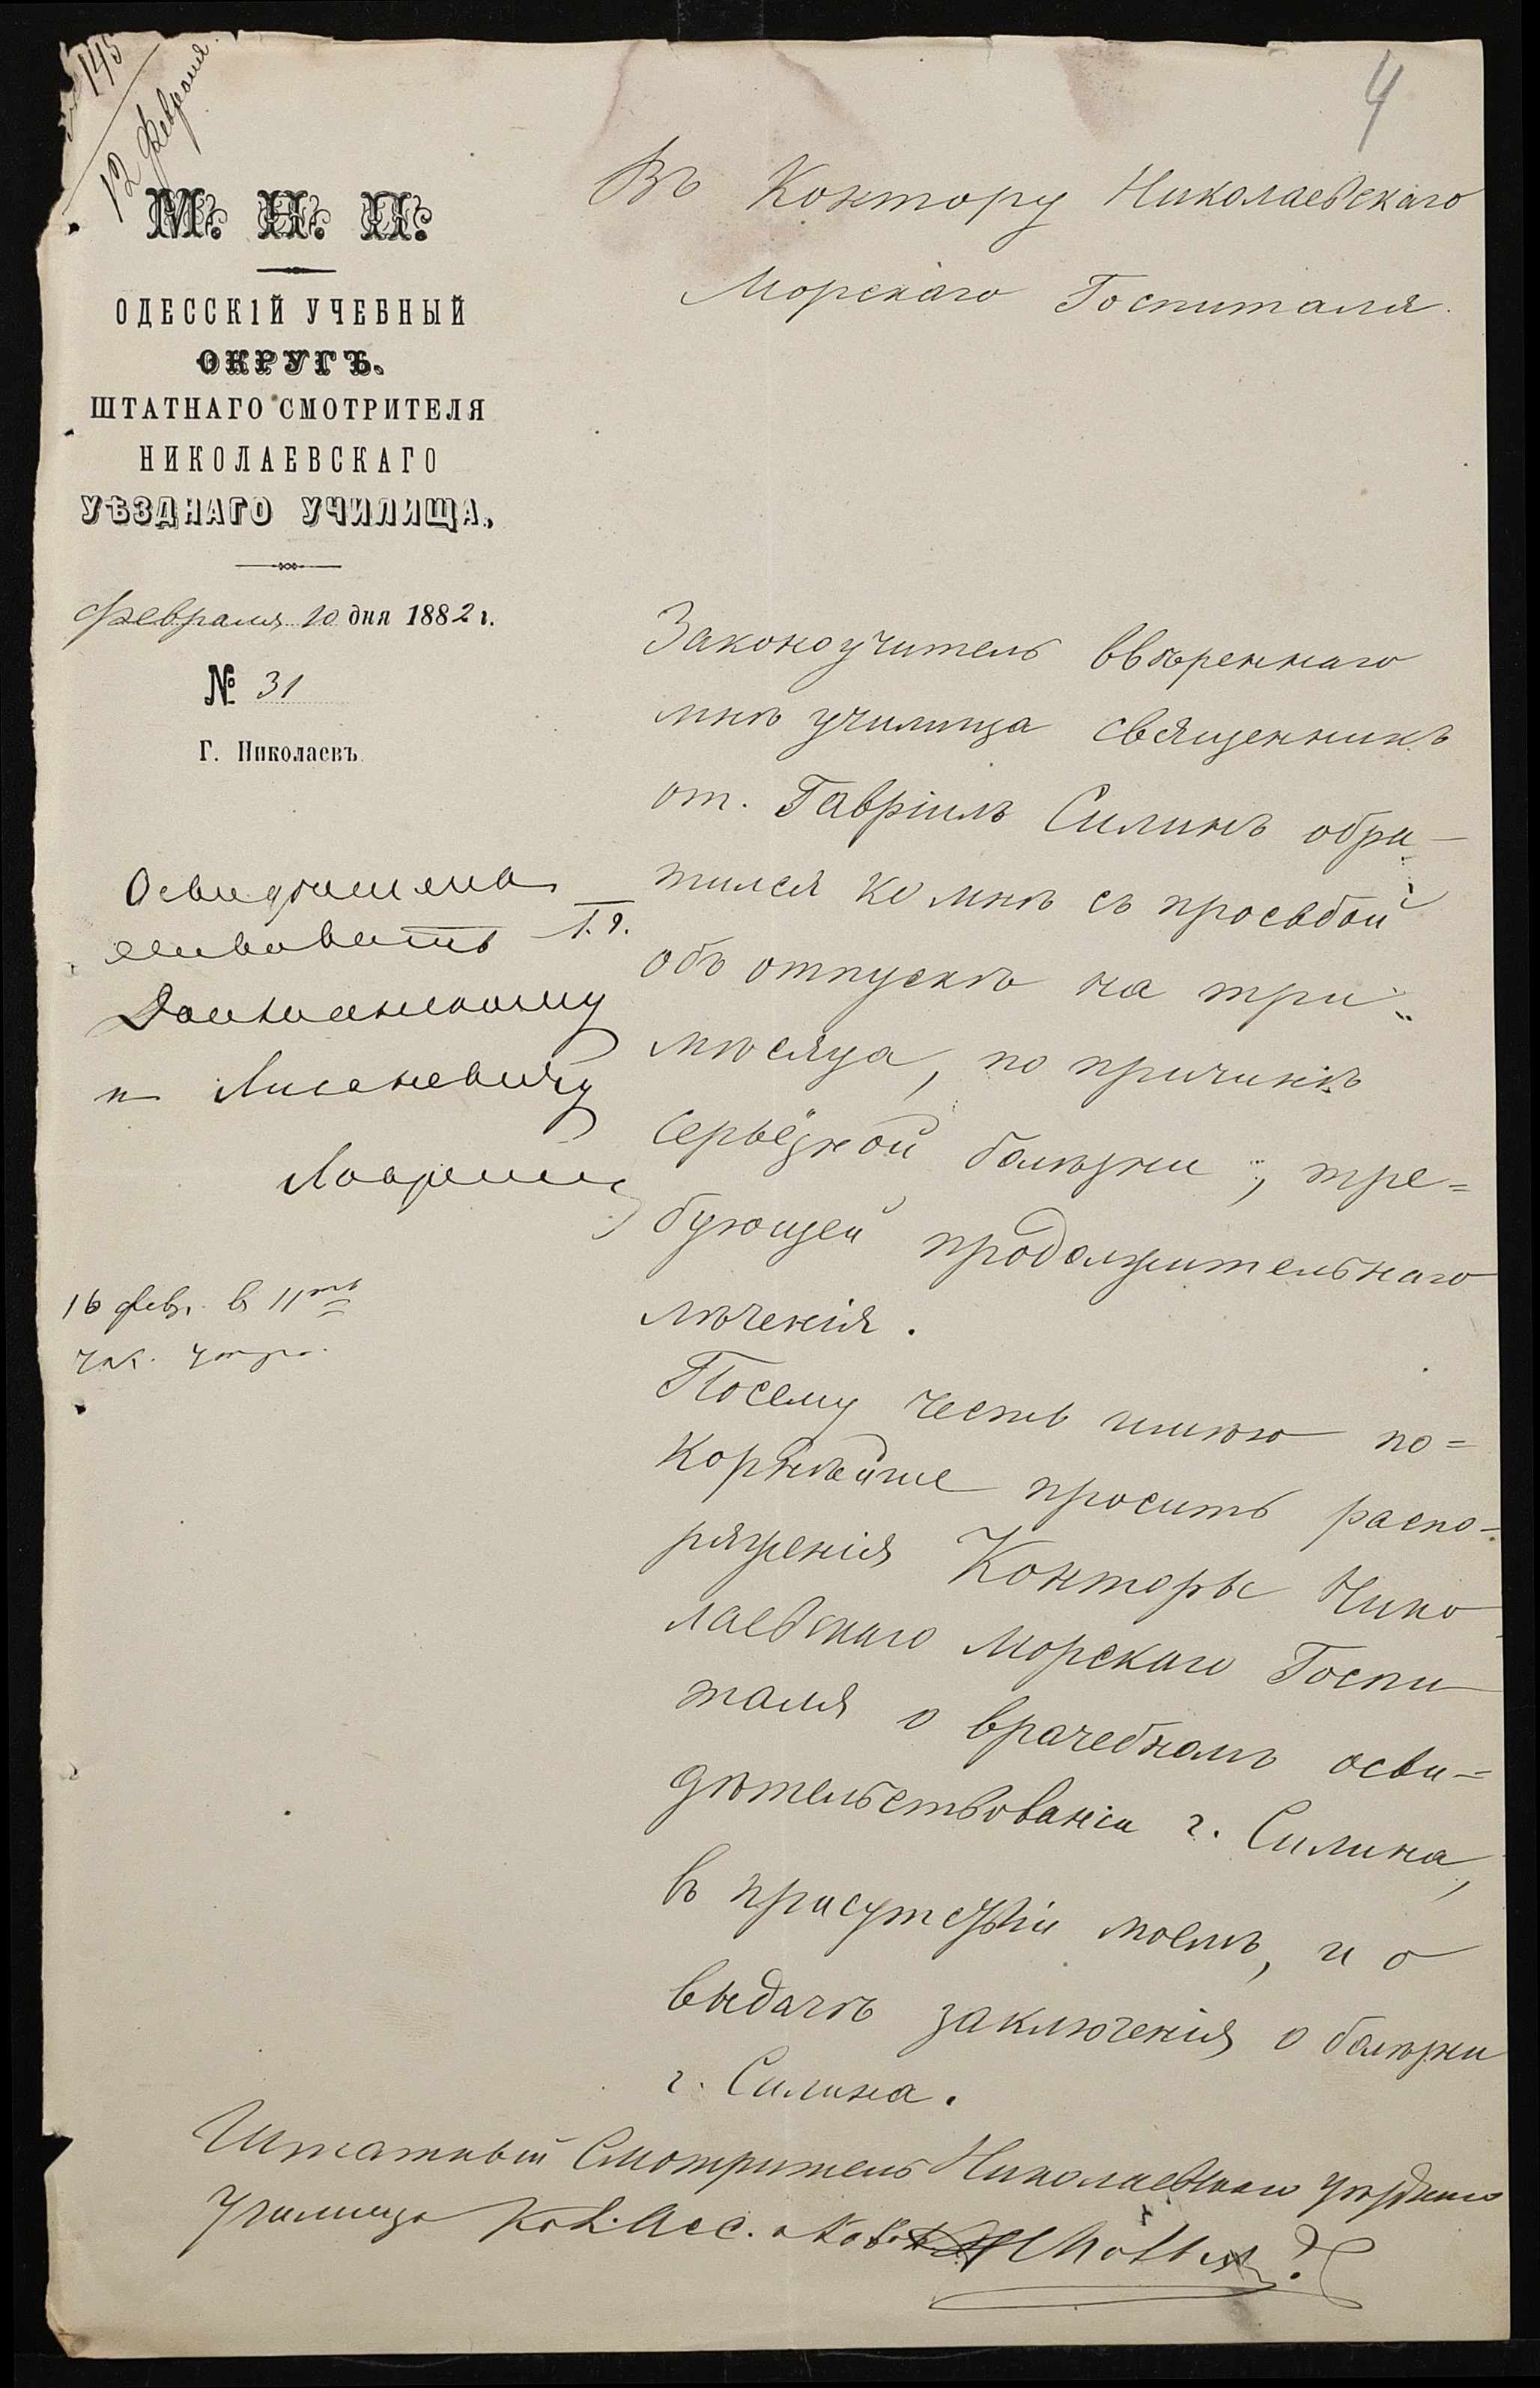 № 145
12 февраля
4
М. Н. П.
ОДЕССКІЙ УЧЕБНЫЙ
ОКРУГЪ.
ШТАТНАГО СМОТРИТЕЛЯ
НИКОЛАЕВСКАГО
УѢЗДНАГО УЧИЛИЩА.
Февраля 10 дня 1882 г.
№ 31
Г. Николаевъ
Освидѣтель
ствовать Г.г.
и Лисаневичу
16 февр. в 11
час. утра.
Въ Контору Николаевскаго
Морскаго Госпиталя.
Законоучитель ввѣреннаго
мнѣ училища священникъ
от. Гавріилъ Силинъ обра-
тился ко мнѣ съ просьбой
объ отпускѣ на три
мѣсяца, по причинѣ
серьёзной болѣзни, тре=
бующей продолжительнаго
лѣченія.
Посему честь имѣю по=
корнѣйше просить распо-
ряженія Конторы Нико
лаевскаго Морскаго Госпи
таля о врачебномъ осви=
дѣтельствованіи г. Силина,
въ присутствіи моемъ, и о
выдачѣ заключенія о болѣзни
г. Силина.
Штатный Смотритель Николаевскаго уѣзднаго
училища Кол. Асс.